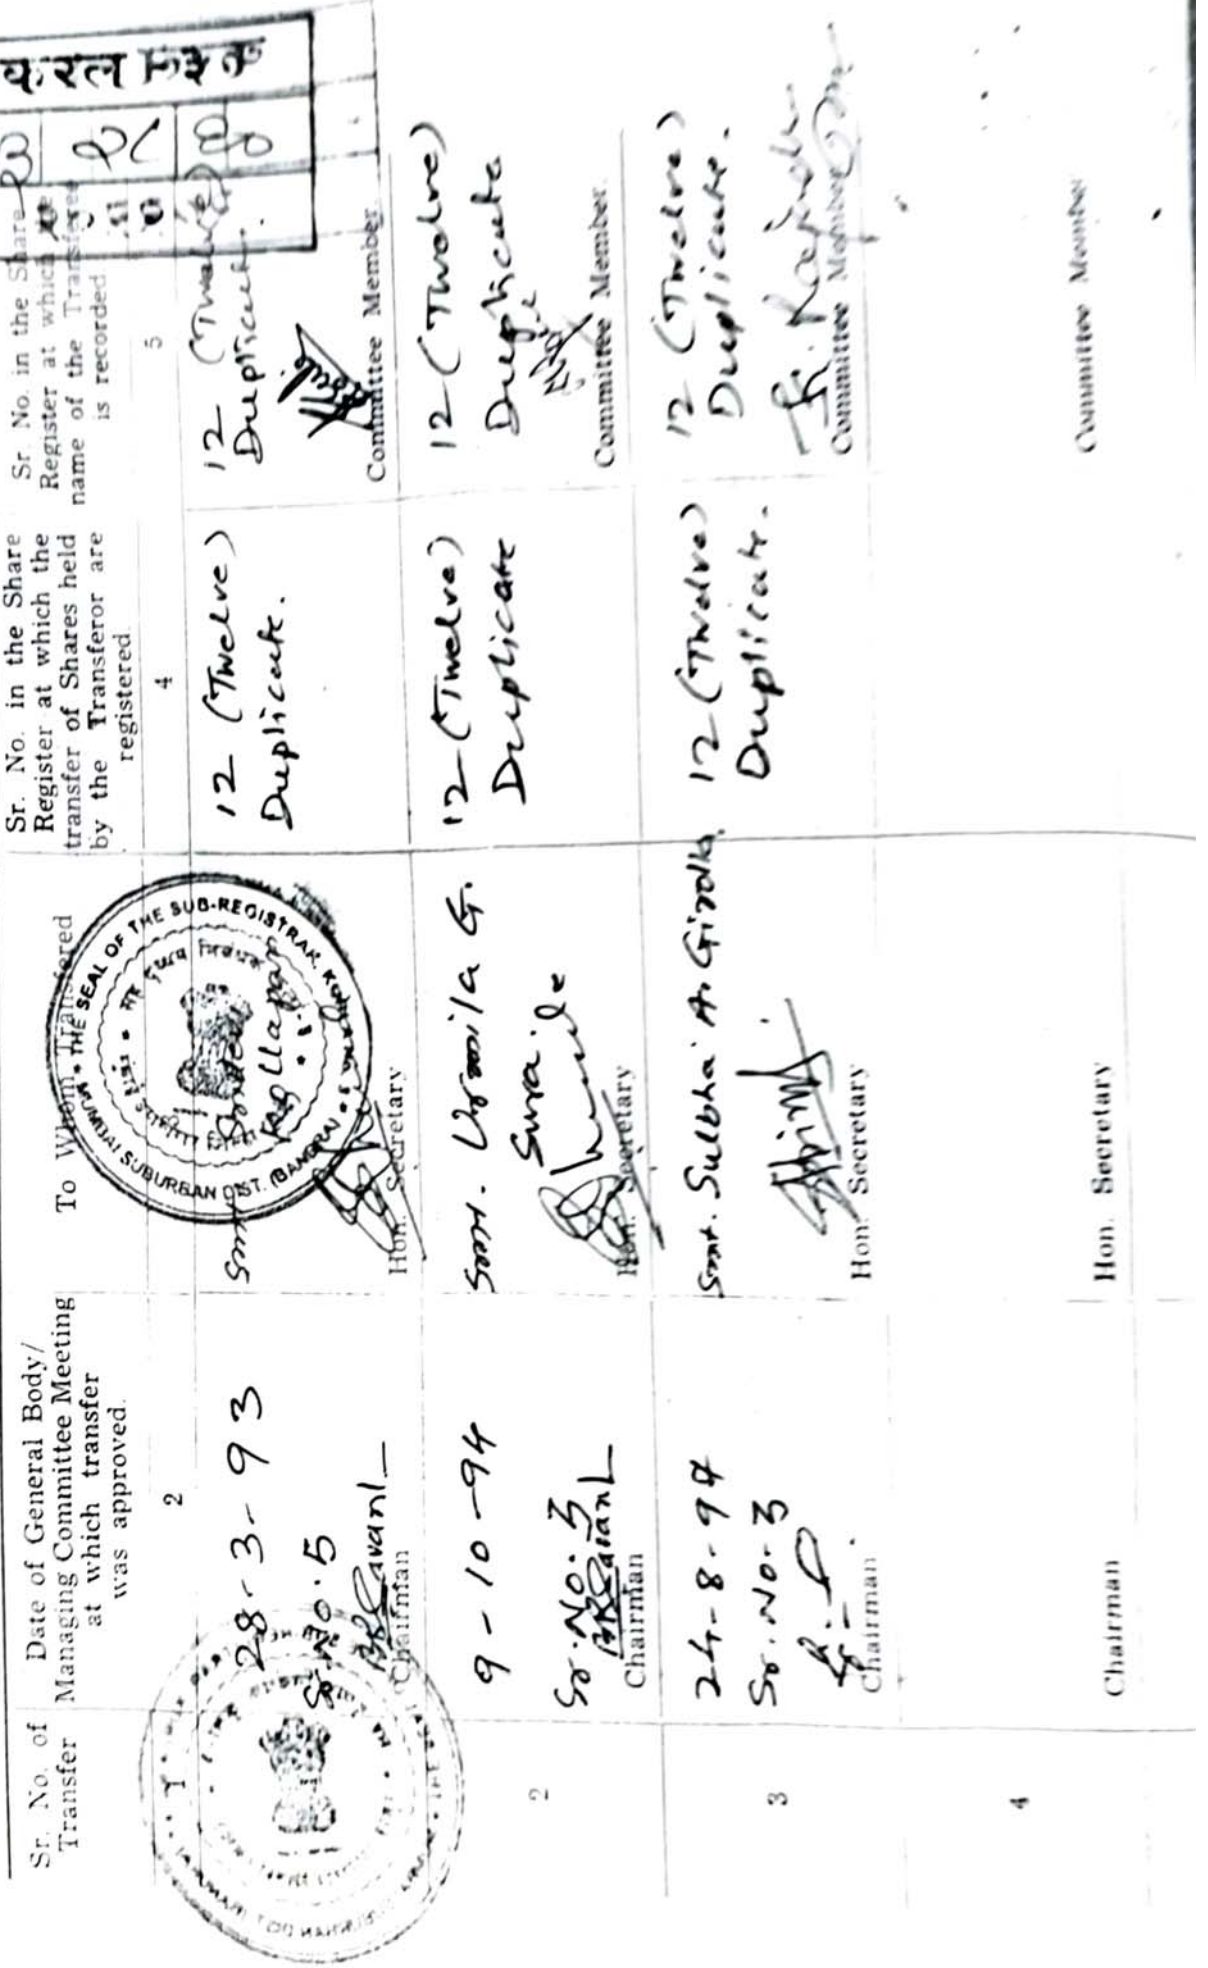 Sr. No. of
Transfer
Date of General Body/
Managing Committee Meeting
at which transfer
was approved.
To Whom Transfered
Sr. No. in the Share
Register at which the
transfer of Shares held
by the Transferor are
registered.
Sr. No. in the Share
Register at which the
name of the Transferee
is recorded
1
2
4
5
28-3-93
Sr. No. 5
Chairman
Smt
Hon. Secretary
12 (Twelve)
Duplicate.
12 (Twelve)
Duplicate.
Committee Member.
2
9-10-94
Sr. No. 3
Chairman
Smt. Urmila G.
Sura.
Hon. Secretary
12-(Twelve)
Duplicate
12-(Twelve)
Duplicate
Committee Member.
3
24-8-97
Sr. No. 3
Chairman
Smt. Sulbha A.
Hon. Secretary
12-(Twelve)
Duplicate.
12 (Twelve)
Duplicate.
Committee Member
4
Chairman
Hon. Secretary
Committee Member
THE SEAL OF THE SUB-REGISTRAR,
SUBURBAN DIST. (BANDRA)
करल